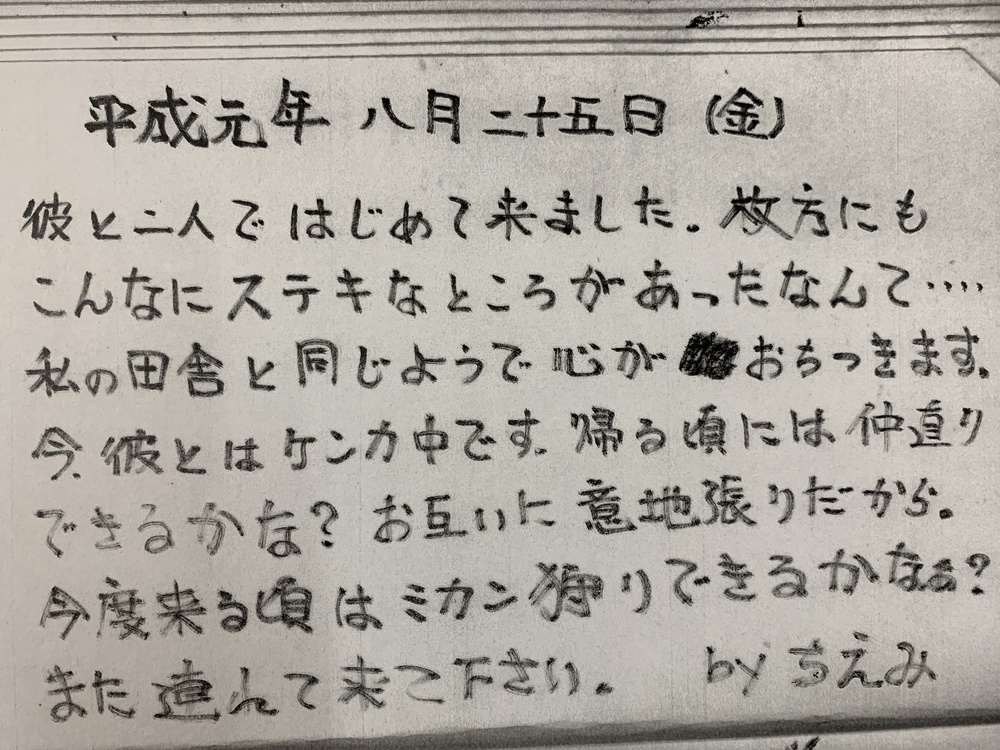 平成元年 八月二十五日 (金)
彼と二人ではじめて来ました。枚方にも
こんなにステキなところがあったなんて‥‥
私の田舎と同じようで心がおちつきます。
今、彼とはケンカ中です。帰る頃には仲直り
できるかな?お互いに意地張りだから。
今度来る頃はミカン狩りできるかなぁ?
また連んて来て下さい。 by ちえみ